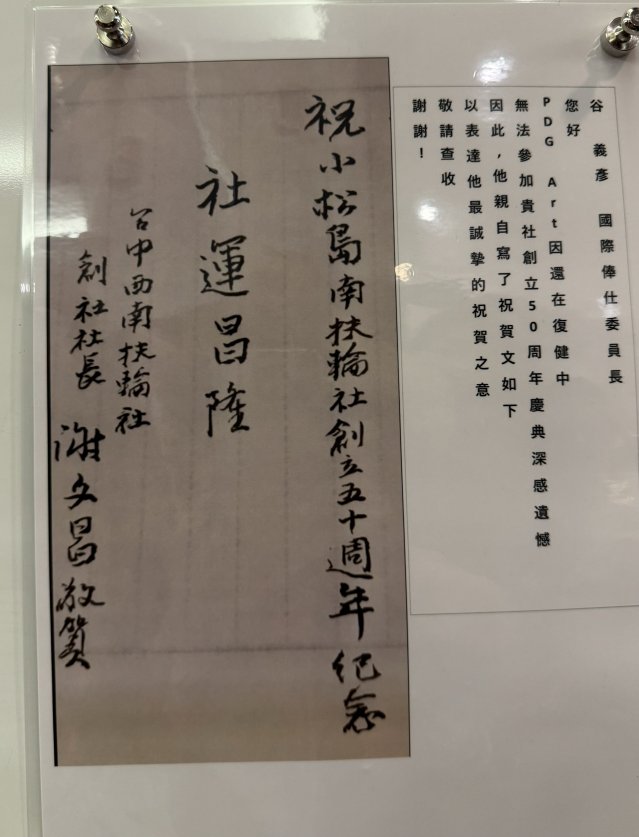 谷 義彥 國際俸仕委員長
您好
PDG Art因還在復健中
無法參加貴社創立50周年慶典深感遺憾
因此,他親自寫了祝賀文如下
以表達他最誠摯的祝賀之意
敬請查收
謝謝!
祝小松島南扶輪社創立五十週年紀念
社運昌隆
台中西南扶輪社
創社社長 謝文昌敬賀